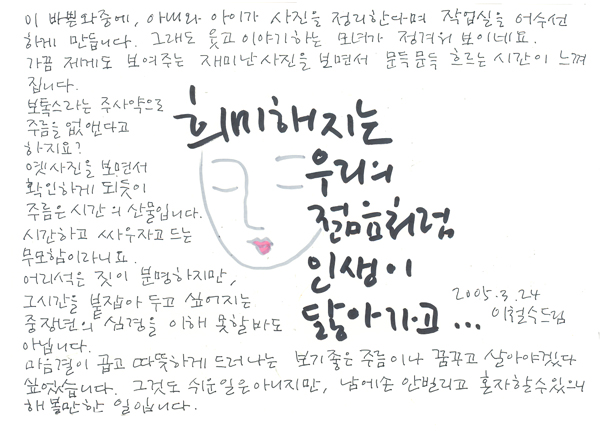 이 바쁜와중에, 아내와 아이가 사진을 정리한다며 작업실을 어수선
하게 만듭니다. 그래도 웃고 이야기하는 모녀가 정겨워 보이네요.
가끔 제게도 보여주는 재미난 사진을 보면서 문득문득 흐르는 시간이 느껴
집니다.
보톡스라는 주사약으로
주름을 없앤다고
하지요?
옛사진을 보면서
확인하게 되듯이
주름은 시간의 산물입니다.
시간하고 싸우자고 드는
무모함이라니요.
어리석은 짓이 분명하지만,
그시간을 붙잡아 두고 싶어지는
중장년의 심경을 이해 못할바도
아닙니다.
마음결이 곱고 따뜻하게 드러나는 보기좋은 주름이나 꿈꾸고 살아야겠다
싶었습니다. 그것도 쉬운일은아니지만, 남에손 안빌리고 혼자할수있으니
해볼만한 일입니다.
희미해지는
우리의
젊음처럼
인생이
닳아가고...
2005.3.24
이철수드림